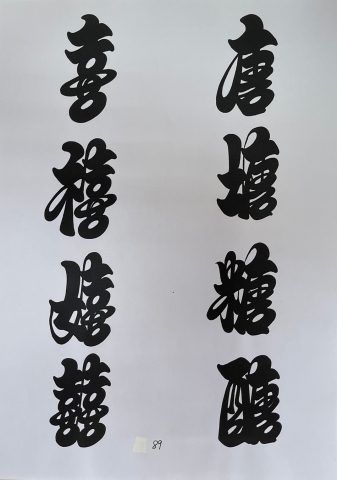 唐塘糖醣
喜禧嬉囍
89